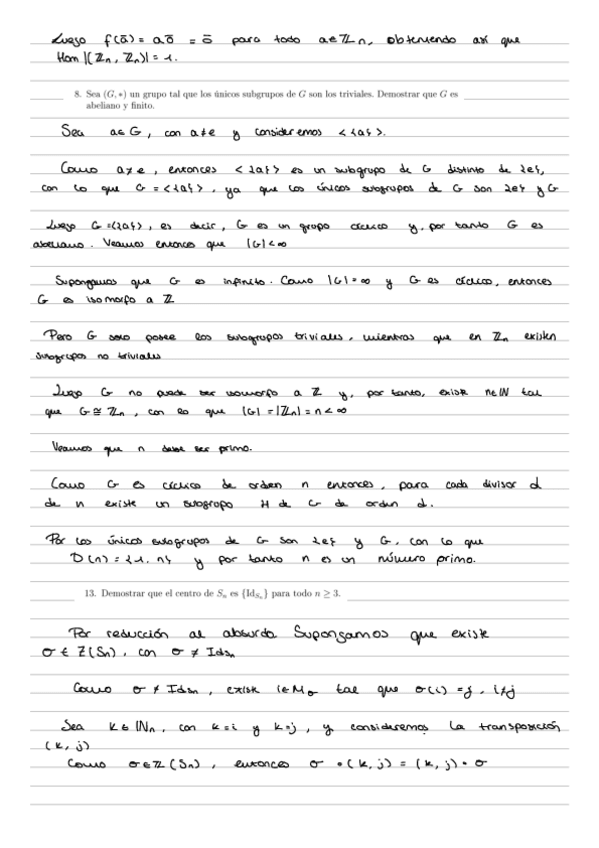 Luego f(ā) = a.ō = ō para todo a∈ℤn, obteniendo así que
Hom |(ℤn, ℤn)| = 1.
8. Sea (G, ∗) un grupo tal que los únicos subgrupos de G son los triviales. Demostrar que G es
abeliano y finito.
Sea a∈G, con a≠e y consideremos <{a}>.
Como a≠e, entonces <{a}> es un subgrupo de G distinto de {e},
con lo que G = <{a}>, ya que los únicos subgrupos de G son {e} y G
Luego G =<{a}>, es decir, G es un grupo cíclico y, por tanto G es
abeliano. Veamos entonces que |G|<∞
Supongamos que G es infinito. Como |G|=∞ y G es cíclico, entonces
G es isomorfo a ℤ
Pero G solo posee los subgrupos triviales, mientras que en ℤn existen
subgrupos no triviales
Luego G no puede ser isomorfo a ℤ y, por tanto, existe n∈ℕ tal
que G≅ℤn, con lo que |G|=|ℤn|=n<∞
Veamos que n debe ser primo.
Como G es cíclico de orden n entonces, para cada divisor d
de n existe un subgrupo H de G de orden d.
Por los únicos subgrupos de G son {e} y G, con lo que
D(n)={1, n} y por tanto n es un número primo.
13. Demostrar que el centro de Sn es {Id_Sn} para todo n ≥ 3.
Por reducción al absurdo. Supongamos que existe
σ ∈ Z(Sn), con σ ≠ Id_Sn
Como σ ≠ Id_Sn, existe i∈Mσ tal que σ(i)=j, i≠j
Sea k∈ℕn, con k=i y k=j, y consideremos la transposición
(k, j)
Como σ∈ℤ(Sn), entonces σ ∘ (k, j) = (k, j) ∘ σ